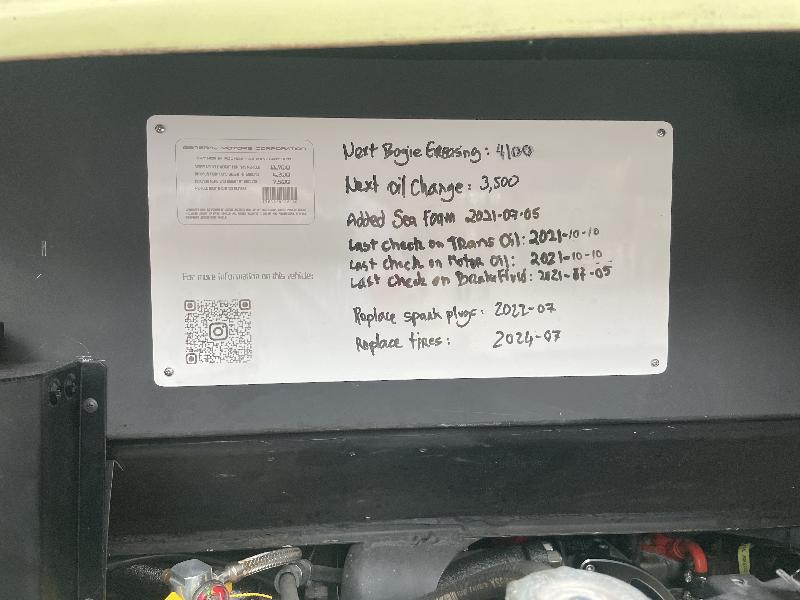 GENERAL MOTORS CORPORATION
7,500
For more information on this vehicle:
Next Bogie Greasing: 4100
Next Oil Change: 3,500
Added Sea Foam 2021-07-05
Last check on Trans Oil: 2021-10-10
Last check on Motor Oil: 2021-10-10
Last check on Brake Fluid: 2021-07-05
Replace spark plugs: 2022-07
Replace tires: 2024-07